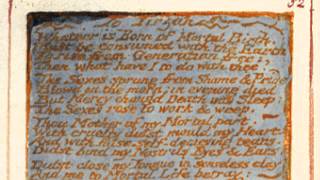 52
To Tirzah
Whate'er is Born of Mortal Birth
Must be consumed with the Earth
To rise from Generation free:
Then what have I to do with thee?
The Sexes sprung from Shame & Pride
Blow'd in the morn: in evening died
But Mercy changd Death into Sleep;
The Sexes rose to work & weep.
Thou Mother of my Mortal part
With cruelty didst mould my Heart
And with false self-decieving tears
Didst bind my Nostrils Eyes & Ears
Didst close my Tongue in senseless clay
And me to Mortal Life betray: